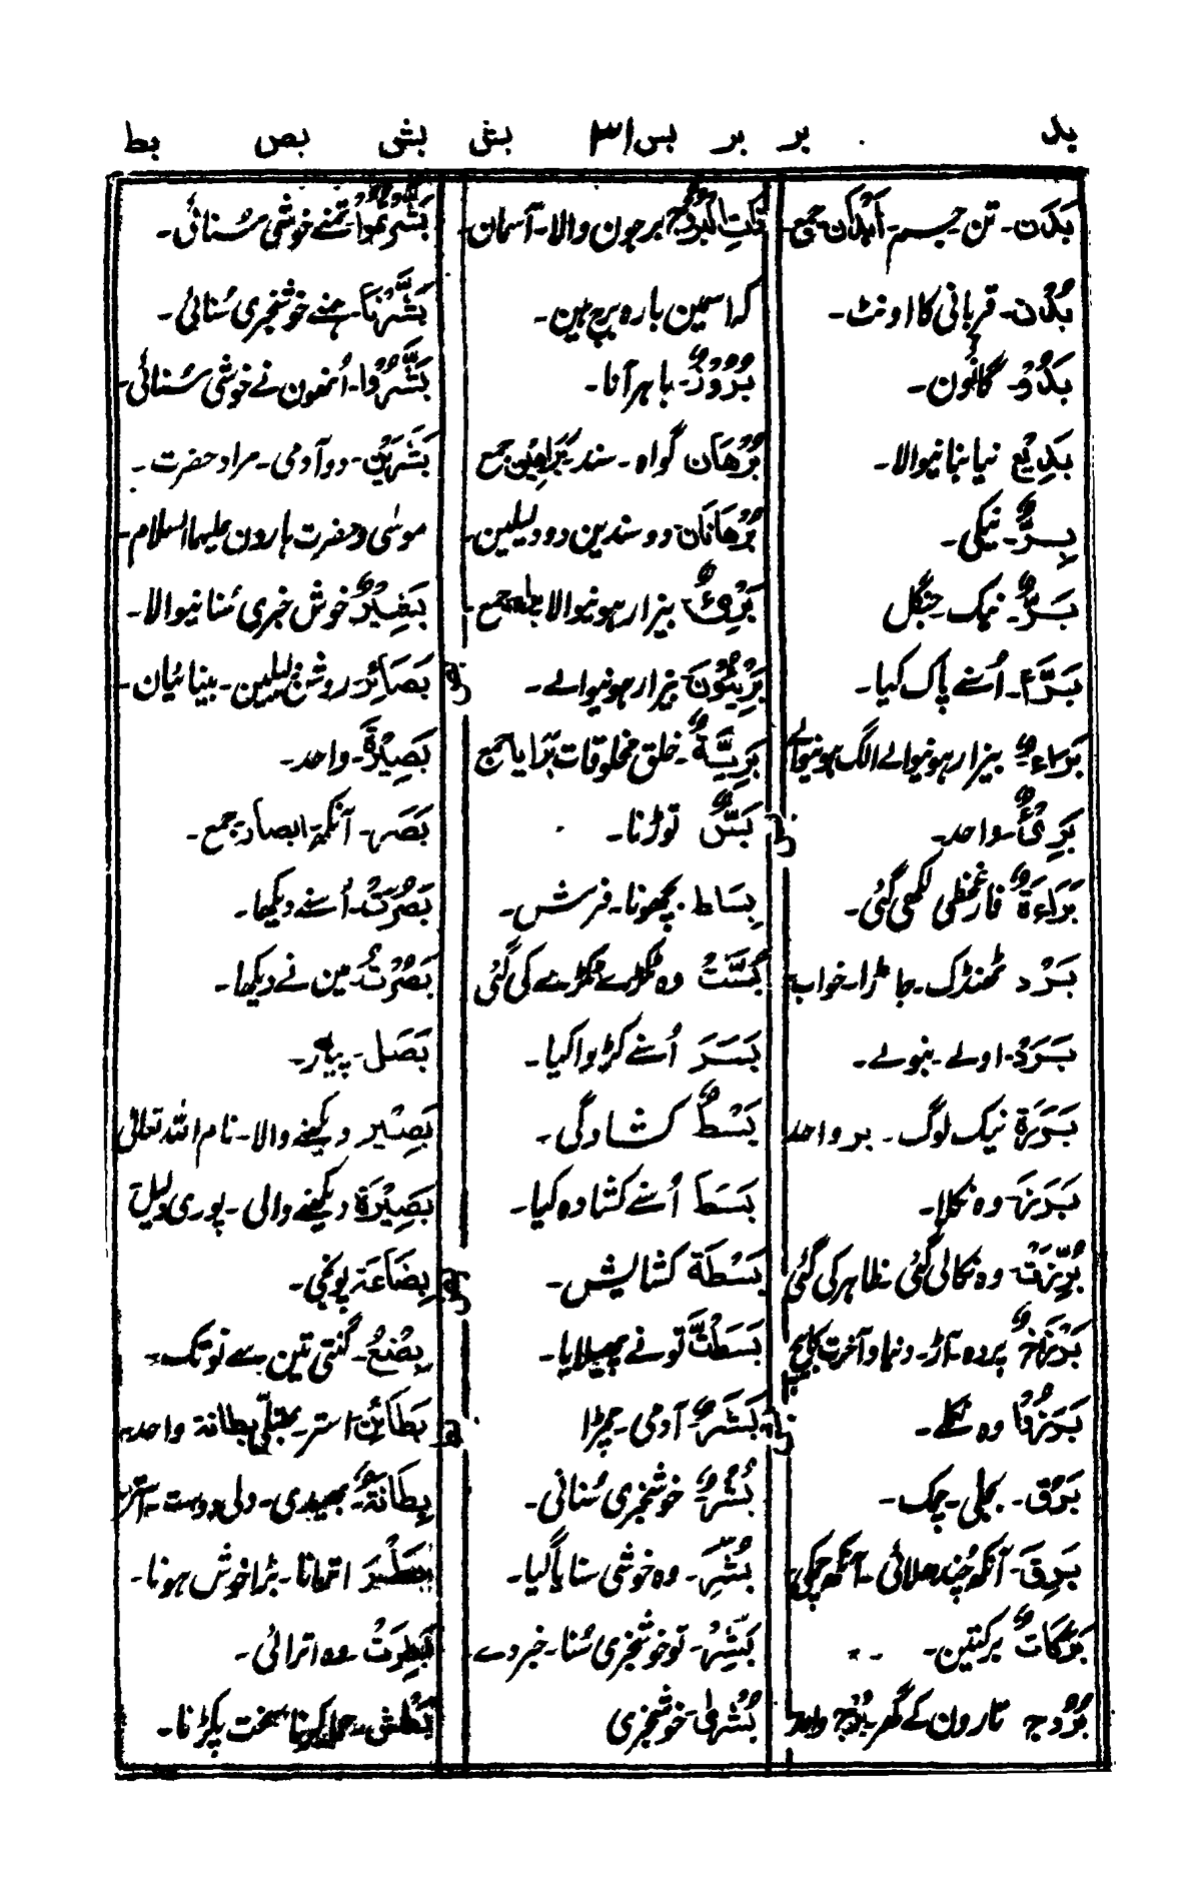 بد بر بر بس ۳۱ بش بش بص بط
بَدَن۔ تن جسم۔ اَبْدَان جمع۔
بُدْن۔ قربانی کا اونٹ۔
بَدْوٌ۔ گانؤن۔
بَدِیْع نیا بنانیوالا۔
بِرٌّ۔ نیکی۔
بَرٌّ۔ نیک جنگل
بَرَّءَ۔ اُسنے پاک کیا۔
بُرَاءٌ بیزار ہونیوالے الگ ہونیوالے
بَرِیْءٌ۔ واحد۔
بَرَاءَةٌ فارغخطی لکھی گئی۔
بَرْد ٹھنڈک۔ جاڑا۔ خواب
بَرَدٌ۔ اولے۔ بنولے۔
بَرَرَة نیک لوگ۔ بر واحد
بَرَزَ وہ نکلا۔
بُرِّزَتْ وہ نکالی گئی ظاہر کی گئی
بَرْزَخٌ پردہ۔ آڑ۔ دنیا و آخرت کا بیچ
بَرَزُوْا وہ نکلے۔
بَرْق۔ بجلی۔ چمک۔
بَرِقَ۔ آنکھ چندھلائی۔ آنکھ چمکی
بَرَکَاتٌ برکتین۔
بُرُوج تارون کے گھر۔ بُرْج واحد
ذَاتِ الْبُرُوْجِ برجون والا۔ آسمان۔
کہ اسمین بارہ برج ہین۔
بُرُوْزٌ۔ باہر آنا۔
بُرْهَان گواہ۔ سند بَرَاهِیْن جمع
بُرْهَانَان دو سندین دو دلیلین۔
بَرِیْءٌ بیزار ہونیوالا جمع۔
بَرِیْئُوْنَ بیزار ہونیوالے۔
بَرِیَّةٌ۔ خلق مخلوقات بَرَایا جمع
بَسٌّ توڑنا۔
بِسَاط۔ بچھونا۔ فرش۔
بُسَّتْ وہ ٹکڑے ٹکڑے کی گئی
بَسَرَ اُسنے کڑوا کیا۔
بَسْطٌ کشادگی۔
بَسَطَ اُسنے کشادہ کیا۔
بَسْطَة کشایش۔
بَسَطْتَّ تونے پھیلایا۔
بَشَرٌ۔ آدمی۔ چمڑا
بُشْرٌ خوشخبری سُنانی۔
بُشِّرَ۔ وہ خوشی سنایا گیا۔
بَشِّرْ۔ تو خوشخبری سُنا۔ خبر دے۔
بُشْرٰی۔ خوشخبری
بَشَّرْتُمُوْا تمنے خوشی سُنائی۔
بَشَّرْنَا۔ ہمنے خوشخبری سُنائی۔
بَشَّرُوْا۔ اُنھون نے خوشی سُنائی۔
بَشَرَیْن۔ دو آدمی۔ مراد حضرت۔
موسٰی و حضرت ہارون علیہما السلام۔
بَشِیْرٌ خوش خبری سُنانیوالا۔
بَصَائِر۔ روشن دلیلین۔ بینائیان۔
بَصِیْرَة۔ واحد۔
بَصَر۔ آنکھ۔ ابصار جمع۔
بَصُرَتْ۔ اُسنے دیکھا۔
بَصُرْتُ۔ مین نے دیکھا۔
بَصَل۔ پیاز۔
بَصِیْر دیکھنے والا۔ نام اللہ تعالی
بَصِیْرَة دیکھنے والی۔ پوری دلیل
بِضَاعَة پونجی۔
بِضْعٌ۔ گنتی تین سے نو تک۔
بَطَائِن استر۔ بطانة واحد۔
بِطَانَةٌ بھیدی۔ ولی دوست۔ استر
بَطَر اترانا۔ بڑا خوش ہونا۔
بَطِرَتْ۔ وہ اترائی۔
بَطْش۔ حملہ کرنا سخت پکڑنا۔